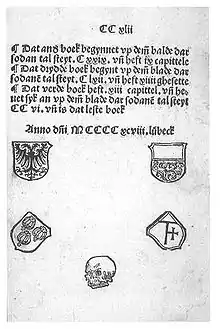 CC xlii
¶ Dat ander boek begynnet vp dem blade dar
sodan tal steyt. C xxix. vñ heft ix capittele
¶ Dat drydde boek begynt vp dem blade dar
sodane tal steyt. C lxii. vñ heft xiiii ghesette
¶ Dat verde boek heft. xiii capittel. vñ he-
uet syk an vp dem blade dar sodane tal steyt
CC vi. vñ is dat leste boek
Anno dñi MCCCC xcviii. lübeck